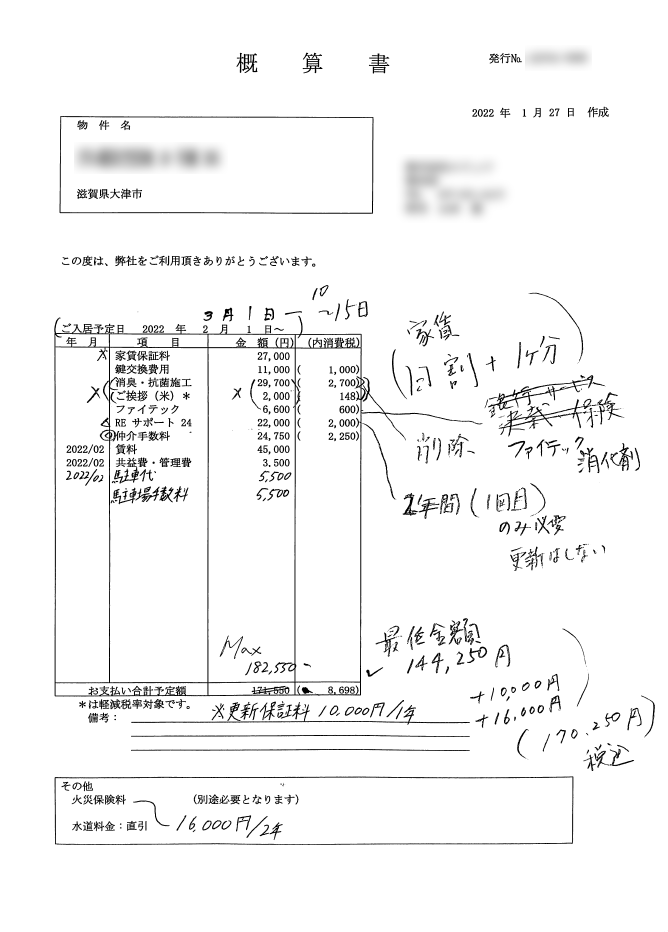 概 算 書
発行No.
2022 年 1 月 27 日 作成
物 件 名
滋賀県大津市
この度は、弊社をご利用頂きありがとうございます。
3月1日ー10〜15日
ご入居予定日 2022 年 2 月 1 日〜
年 月 項 目 金 額(円) (内消費税)
× 家賃保証料 27,000
鍵交換費用 11,000 ( 1,000)
消臭・抗菌施工 29,700 ( 2,700)
× ご挨拶(米)* × 2,000 ( 148)
ファイテック 6,600 ( 600)
RE サポート 24 22,000 ( 2,000)
仲介手数料 24,750 ( 2,250)
2022/02 賃料 45,000
2022/02 共益費・管理費 3,500
2022/02 駐車代 5,500
駐車場手数料 5,500
家賃
(日割+1ヶ分
銀行サービス
保険
削除
ファイテック
消化剤
2年間(1回目)
のみ必要
更新はしない
Max
182,550-
最低金額
✓ 144,250円
+10,000円
+16,000円
(170,250円)
税込
お支払い合計予定額 171,550 ( 8,698)
*は軽減税率対象です。
備考: ※更新保証料 10,000円/1年
その他
火災保険料 (別途必要となります)
水道料金:直引 16,000円/2年